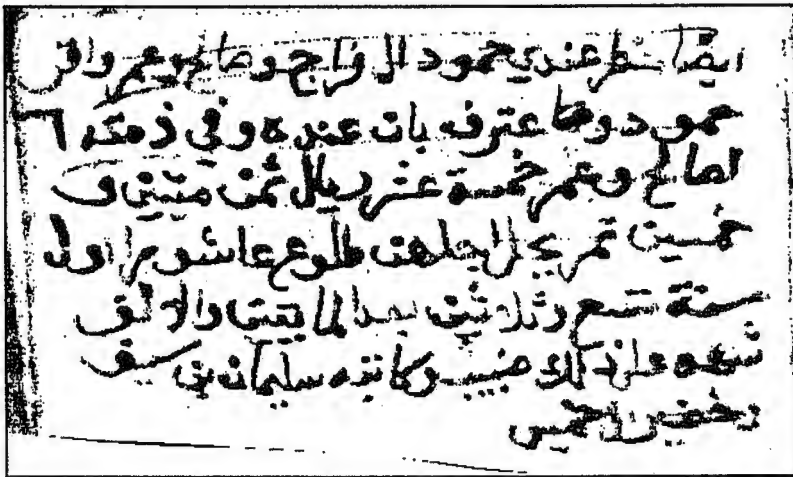 ايضا حظر عندي حمود ال فراج وصالح وعمر واقر
حمود وعترف بان عنده وفي ذمته
لصالح وعمر خمسة عشر ريال ثمن ميتين و
خمسين تمر يحل اجلهن طلوع عاشور اول
سنة تسع وثلاثين بعد المايتين والالف
شهد على ذلك وكاتبه سليمان بن سيف